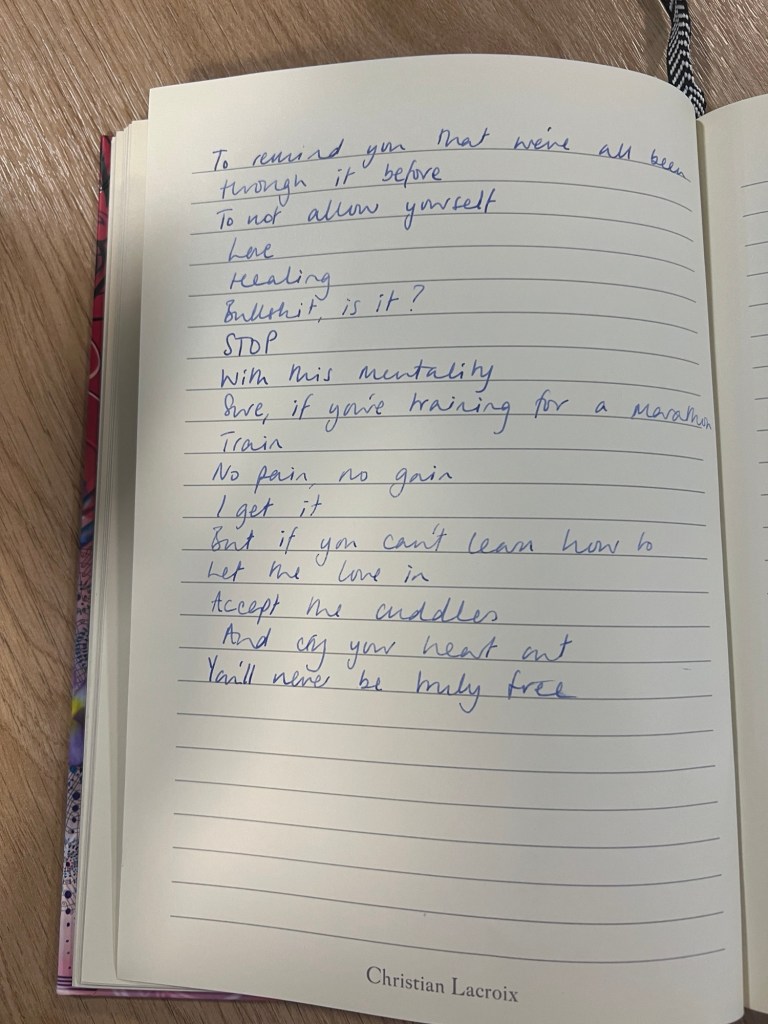 To remind you that we've all been
through it before
To not allow yourself
Love
Healing
Bullshit, is it?
STOP
With this mentality
Sure, if you're training for a marathon
Train
No pain, no gain
I get it
But if you can't learn how to
Let the love in
Accept the cuddles
And cry your heart out
You'll never be truly free
Christian Lacroix